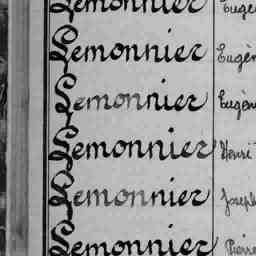 Lemonnier Eugè
Lemonnier Eugèn
Lemonnier Eugèn
Lemonnier Henri
Lemonnier Joseph
Lemonnier Pierre